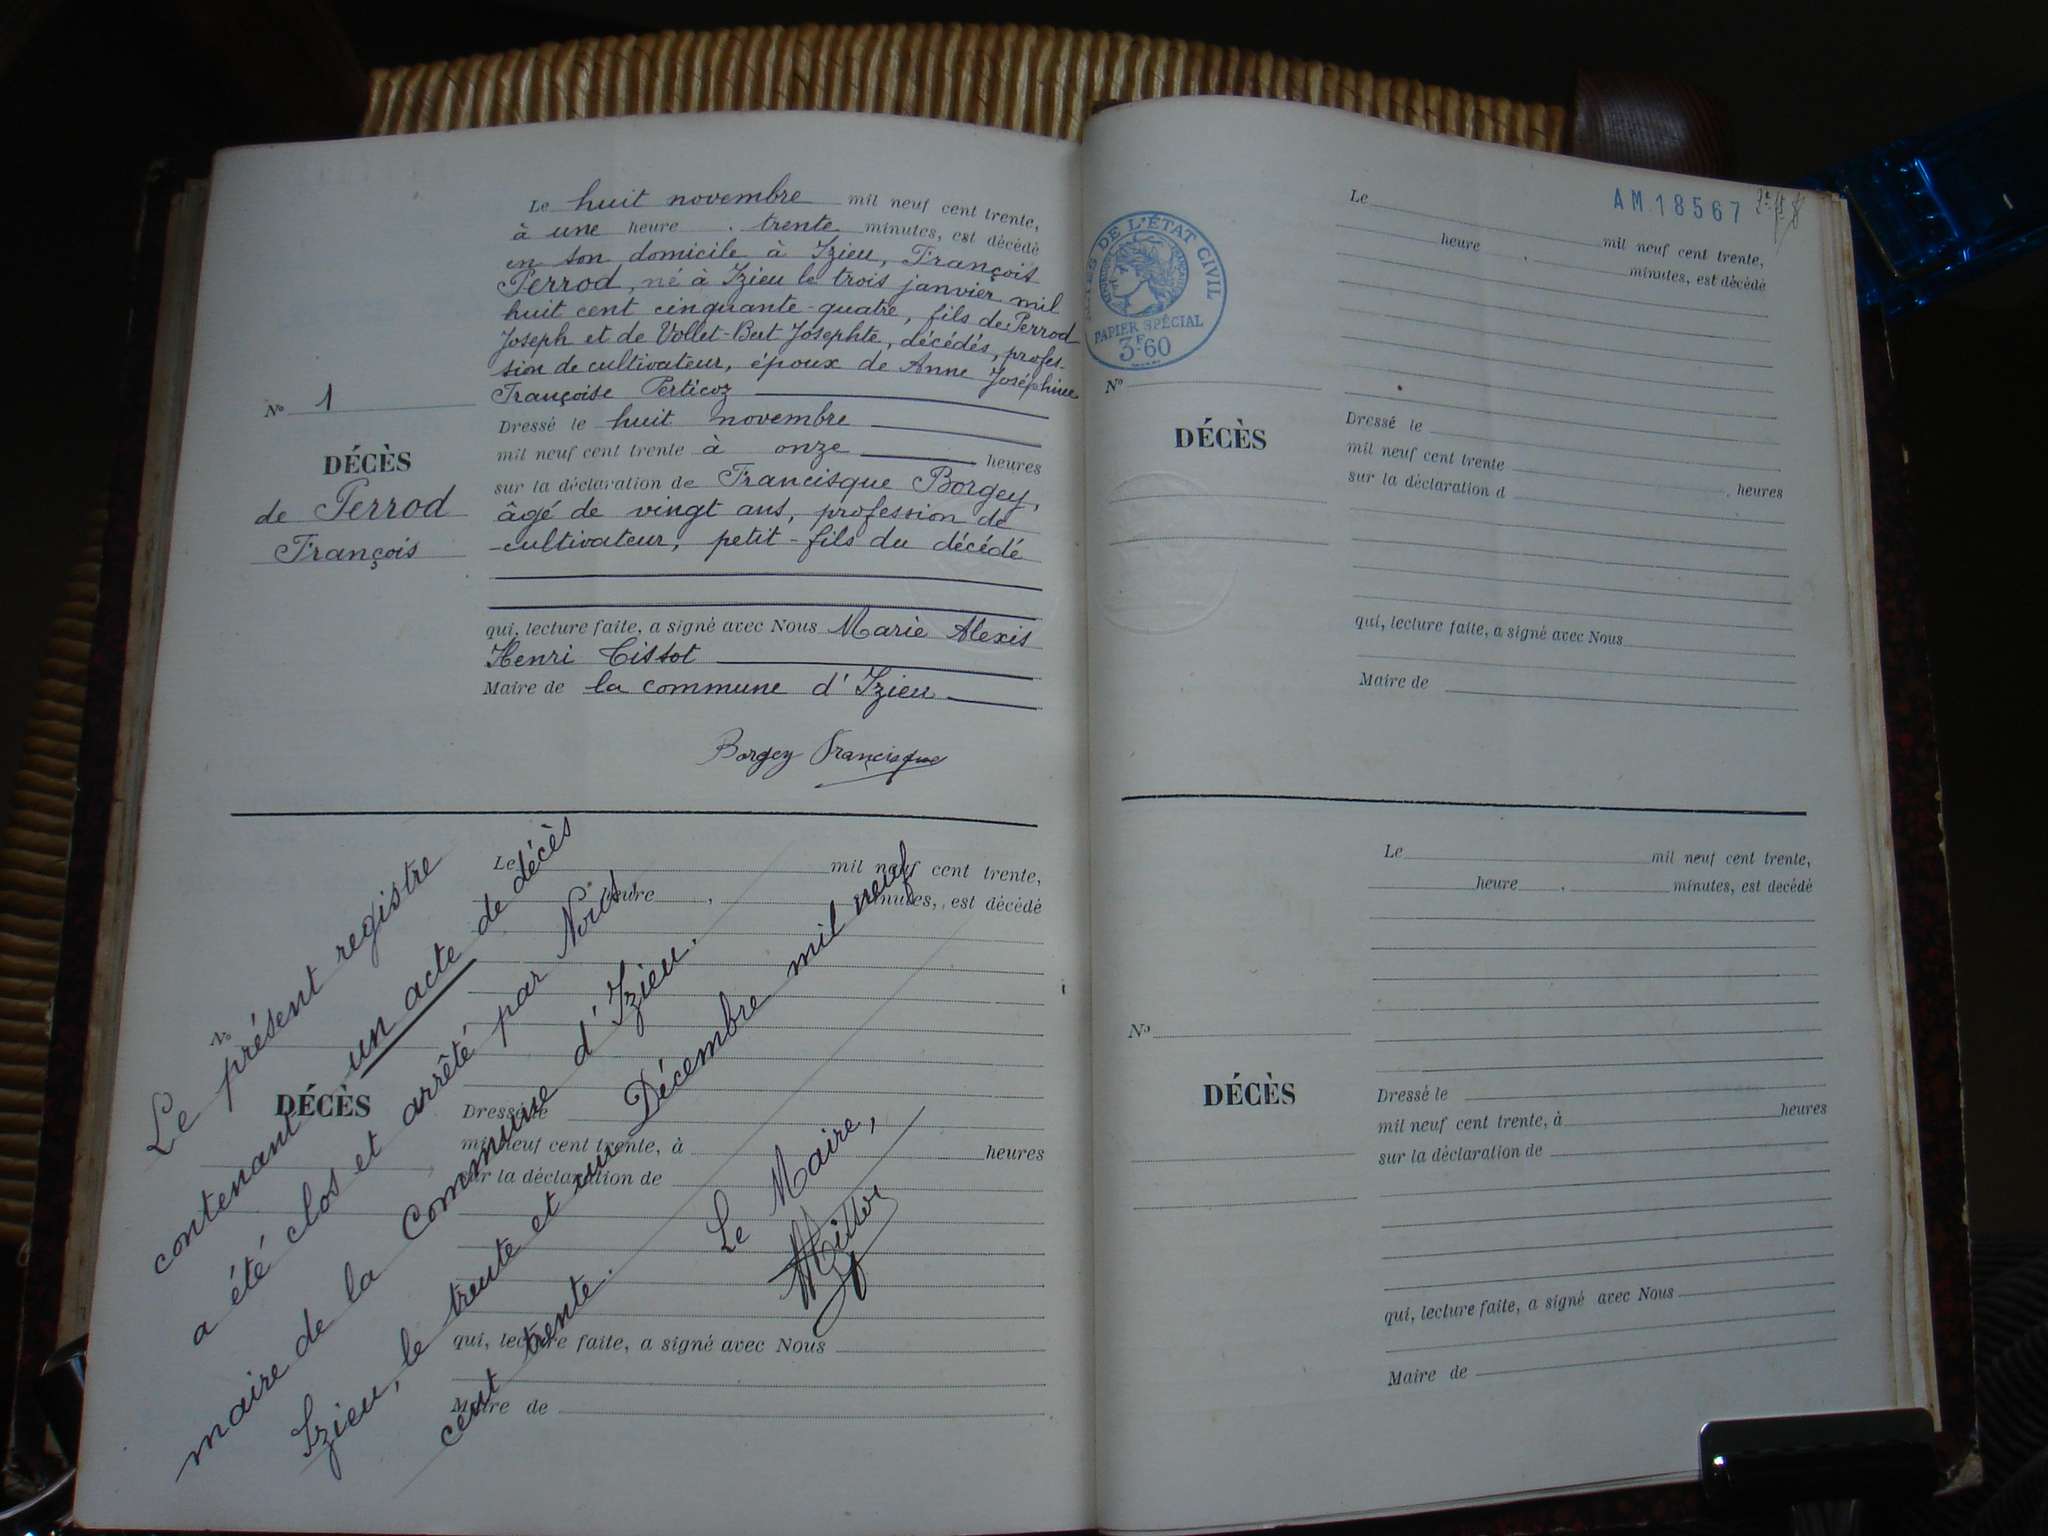 Le huit novembre mil neuf cent trente,
à une heure , trente minutes, est décédé
en son domicile à Izieu, François
Perrod, né à Izieu le trois janvier mil
huit cent cinquante-quatre, fils de Perrod
Joseph et de Vollet-Bert Josephte, décédés, profes-
sion de cultivateur, époux de Anne Joséphine
Françoise Perticoz
No 1
DÉCÈS
de Perrod
François
Dressé le huit novembre
mil neuf cent trente à onze heures
sur la déclaration de Francisque Borgey,
âgé de vingt ans, profession de
cultivateur, petit-fils du décédé
qui, lecture faite, a signé avec Nous Marie Alexis
Henri Tissot
Maire de la commune d'Izieu
Borgey Francisque
Le mil neuf cent trente,
heure , minutes, est décédé
No
DÉCÈS
Dressé le
mil neuf cent trente, à heures
sur la déclaration de
qui, lecture faite, a signé avec Nous
Maire de
Le présent registre
contenant un acte de décès
a été clos et arrêté par Nous
maire de la Commune d'Izieu.
Izieu, le trente et un Décembre mil neuf
cent trente.
Le Maire,
AM.18567
DE L'ÉTAT CIVIL
PAPIER SPÉCIAL
3F60
Le mil neuf cent trente,
heure , minutes, est décédé
No
DÉCÈS
Dressé le
mil neuf cent trente
sur la déclaration d , heures
qui, lecture faite, a signé avec Nous
Maire de
Le mil neuf cent trente,
heure , minutes, est décédé
No
DÉCÈS
Dressé le
mil neuf cent trente, à heures
sur la déclaration de
qui, lecture faite, a signé avec Nous
Maire de